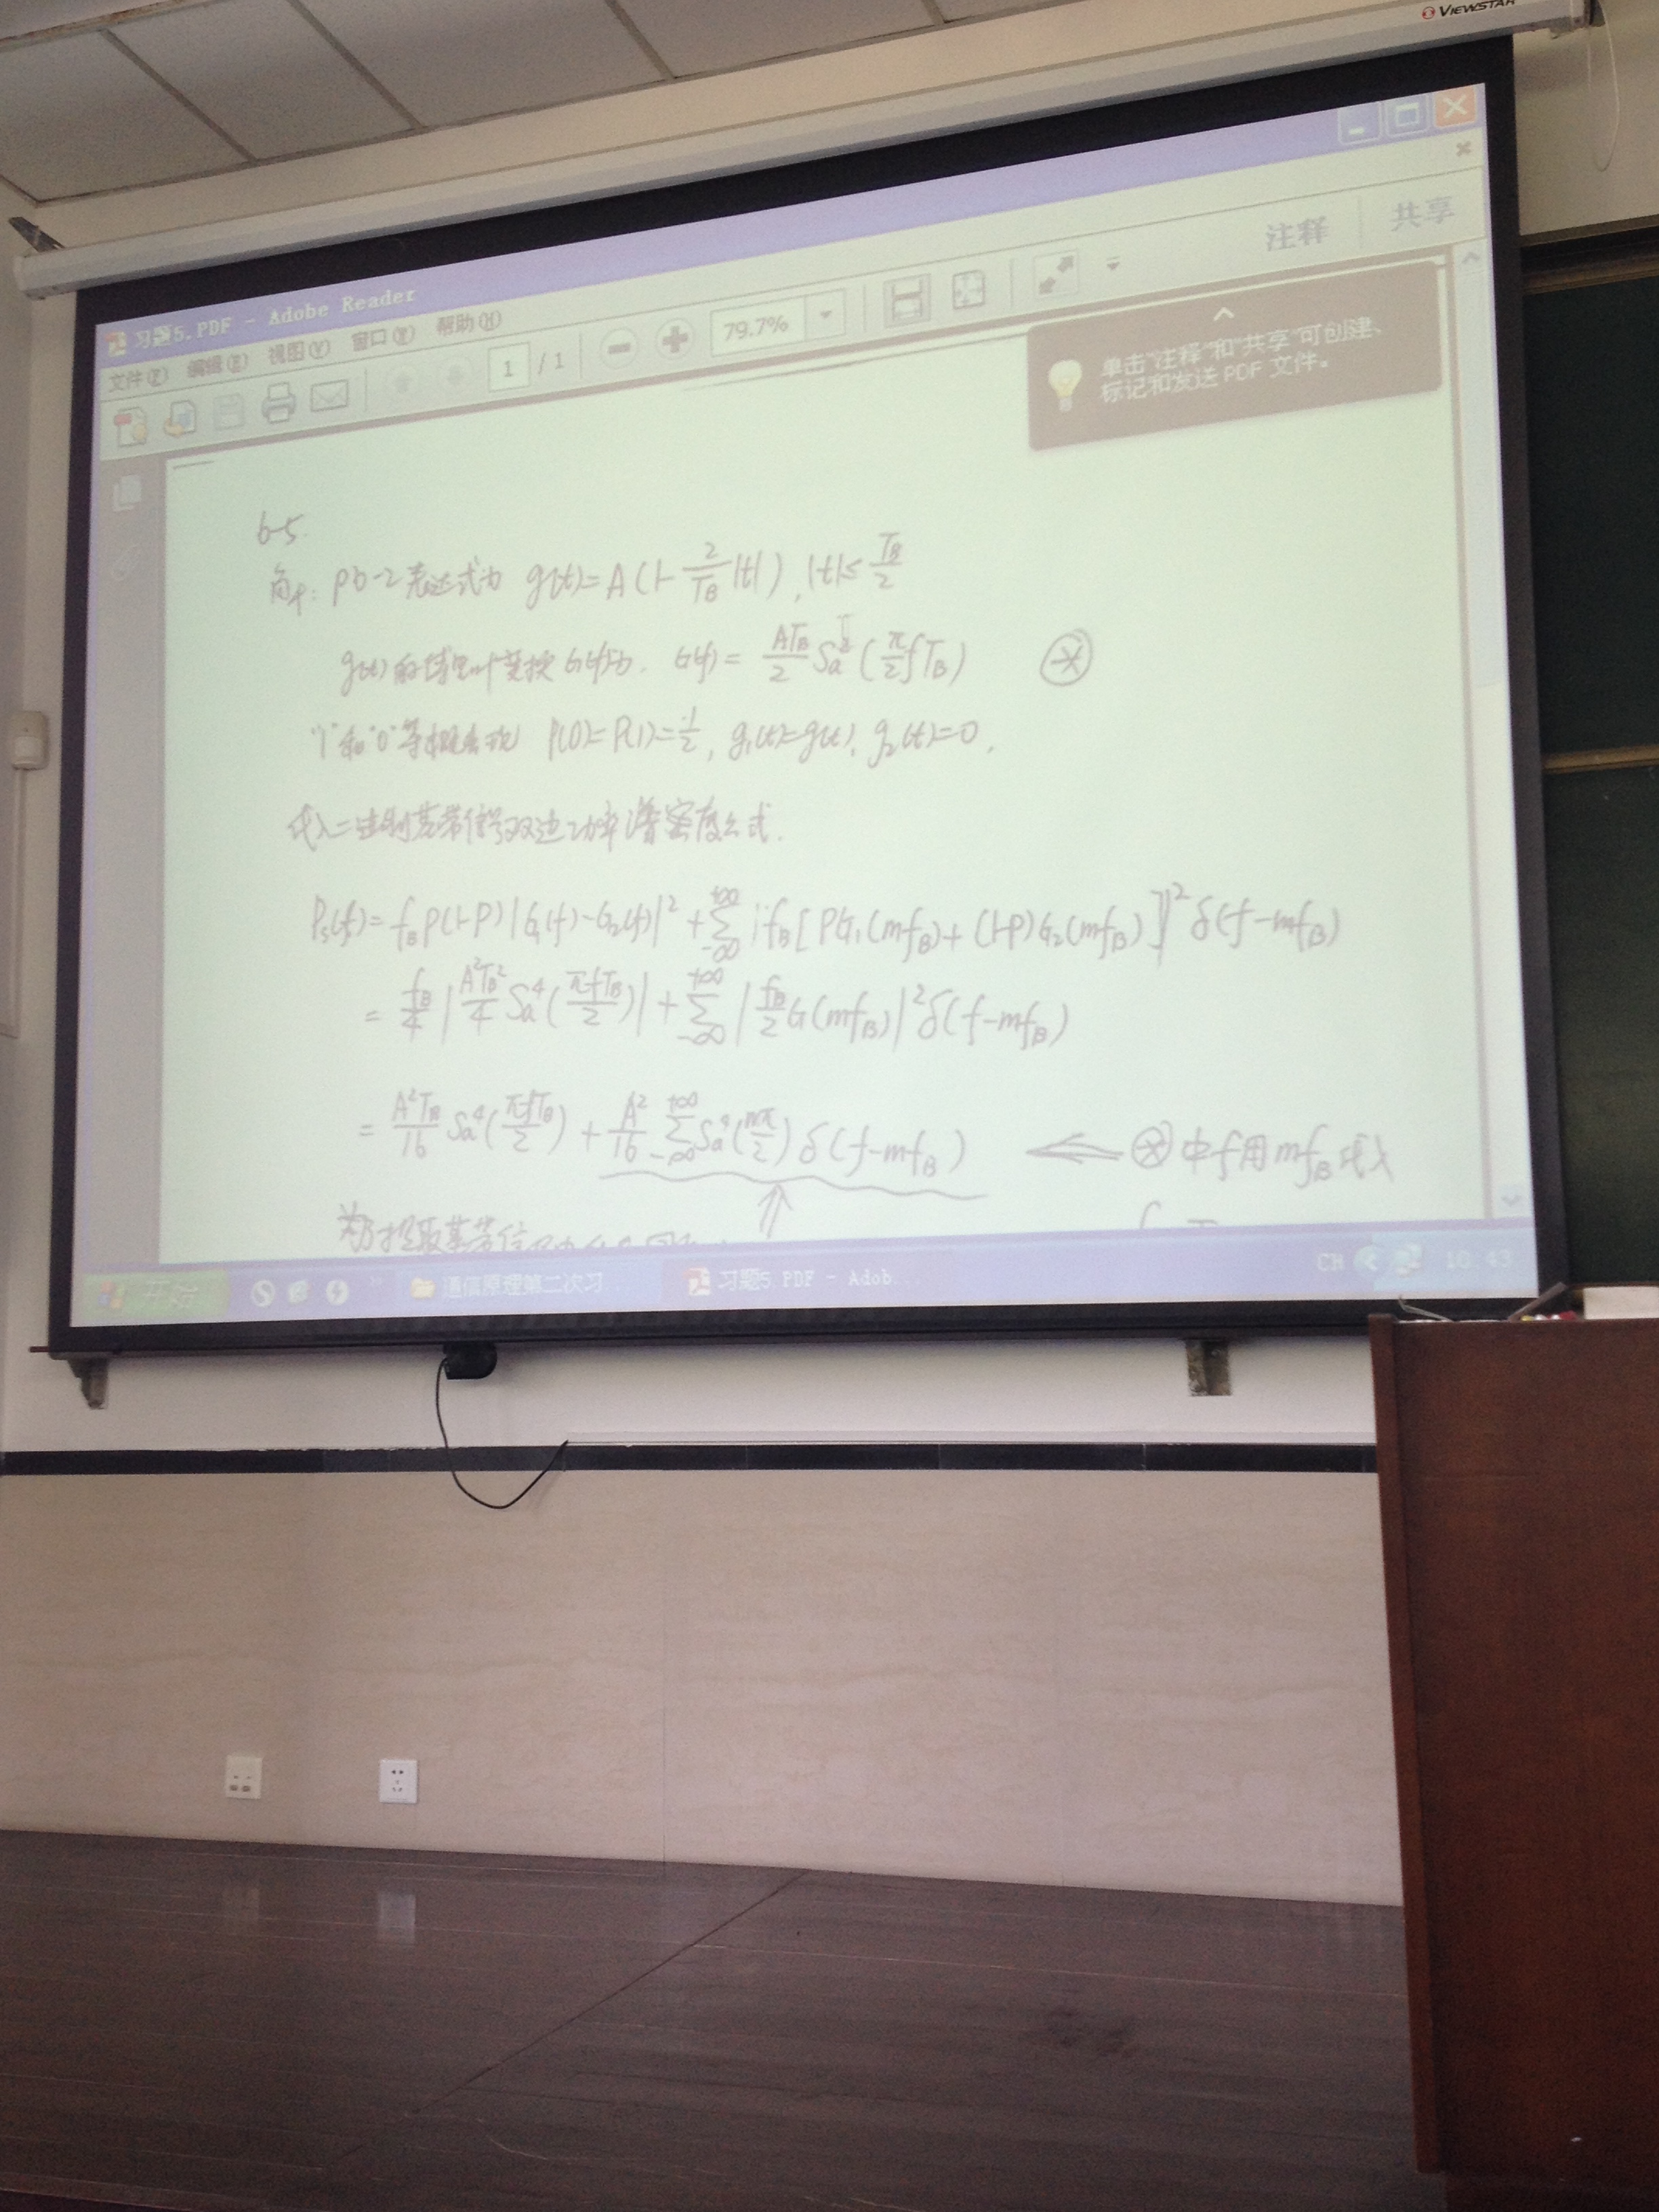 VIEWSTAR
习题5.PDF - Adobe Reader
文件(F) 编辑(E) 视图(V) 窗口(W) 帮助(H)
注释 共享
1 / 1 79.7%
单击“注释”和“共享”可创建、
标记和发送 PDF 文件。
6-5.
解: P6-2表达式为 g(t)=A(1-\frac{2}{T_B}|t|), |t|≤\frac{T_B}{2}
g(t)的傅里叶变换G(f)为. G(f)=\frac{AT_B}{2}Sa^2(\frac{π}{2}fT_B) ⊛
"1"和"0"等概出现 P(0)=P(1)=\frac{1}{2}, g_1(t)=g(t), g_2(t)=0,
代入二进制基带信号双边功率谱密度公式.
P_s(f)=f_B P(1-P)|G_1(f)-G_2(f)|^2+\sum_{-∞}^{+∞}|f_B[PG_1(mf_B)+(1-P)G_2(mf_B)]|^2 δ(f-mf_B)
=\frac{f_B}{4}|\frac{A^2T_B^2}{4}Sa^4(\frac{πfT_B}{2})|+\sum_{-∞}^{+∞}|\frac{f_B}{2}G(mf_B)|^2δ(f-mf_B)
=\frac{A^2T_B}{16}Sa^4(\frac{πfT_B}{2})+\frac{A^2}{16}\sum_{-∞}^{+∞}Sa^4(\frac{mπ}{2})δ(f-mf_B) ⇐ ⊛中f用mf_B代入
开始 通信原理第二次习 习题5.PDF - Adob... CH 10:43